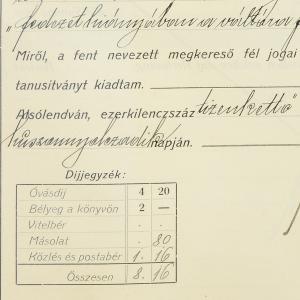 "fedezet hiányában a váltóra
Miről, a fent nevezett megkereső fél jogai
tanusitványt kiadtam.
Alsólendván, ezerkilenczszáz tizenkettő
huszonnyolczadik napján.
Díjjegyzék:
Óvásdíj 4 20
Bélyeg a könyvön 2 —
Vitelbér . .
Másolat . 80
Közlés és postabér 1. 16
Összesen 8. 16